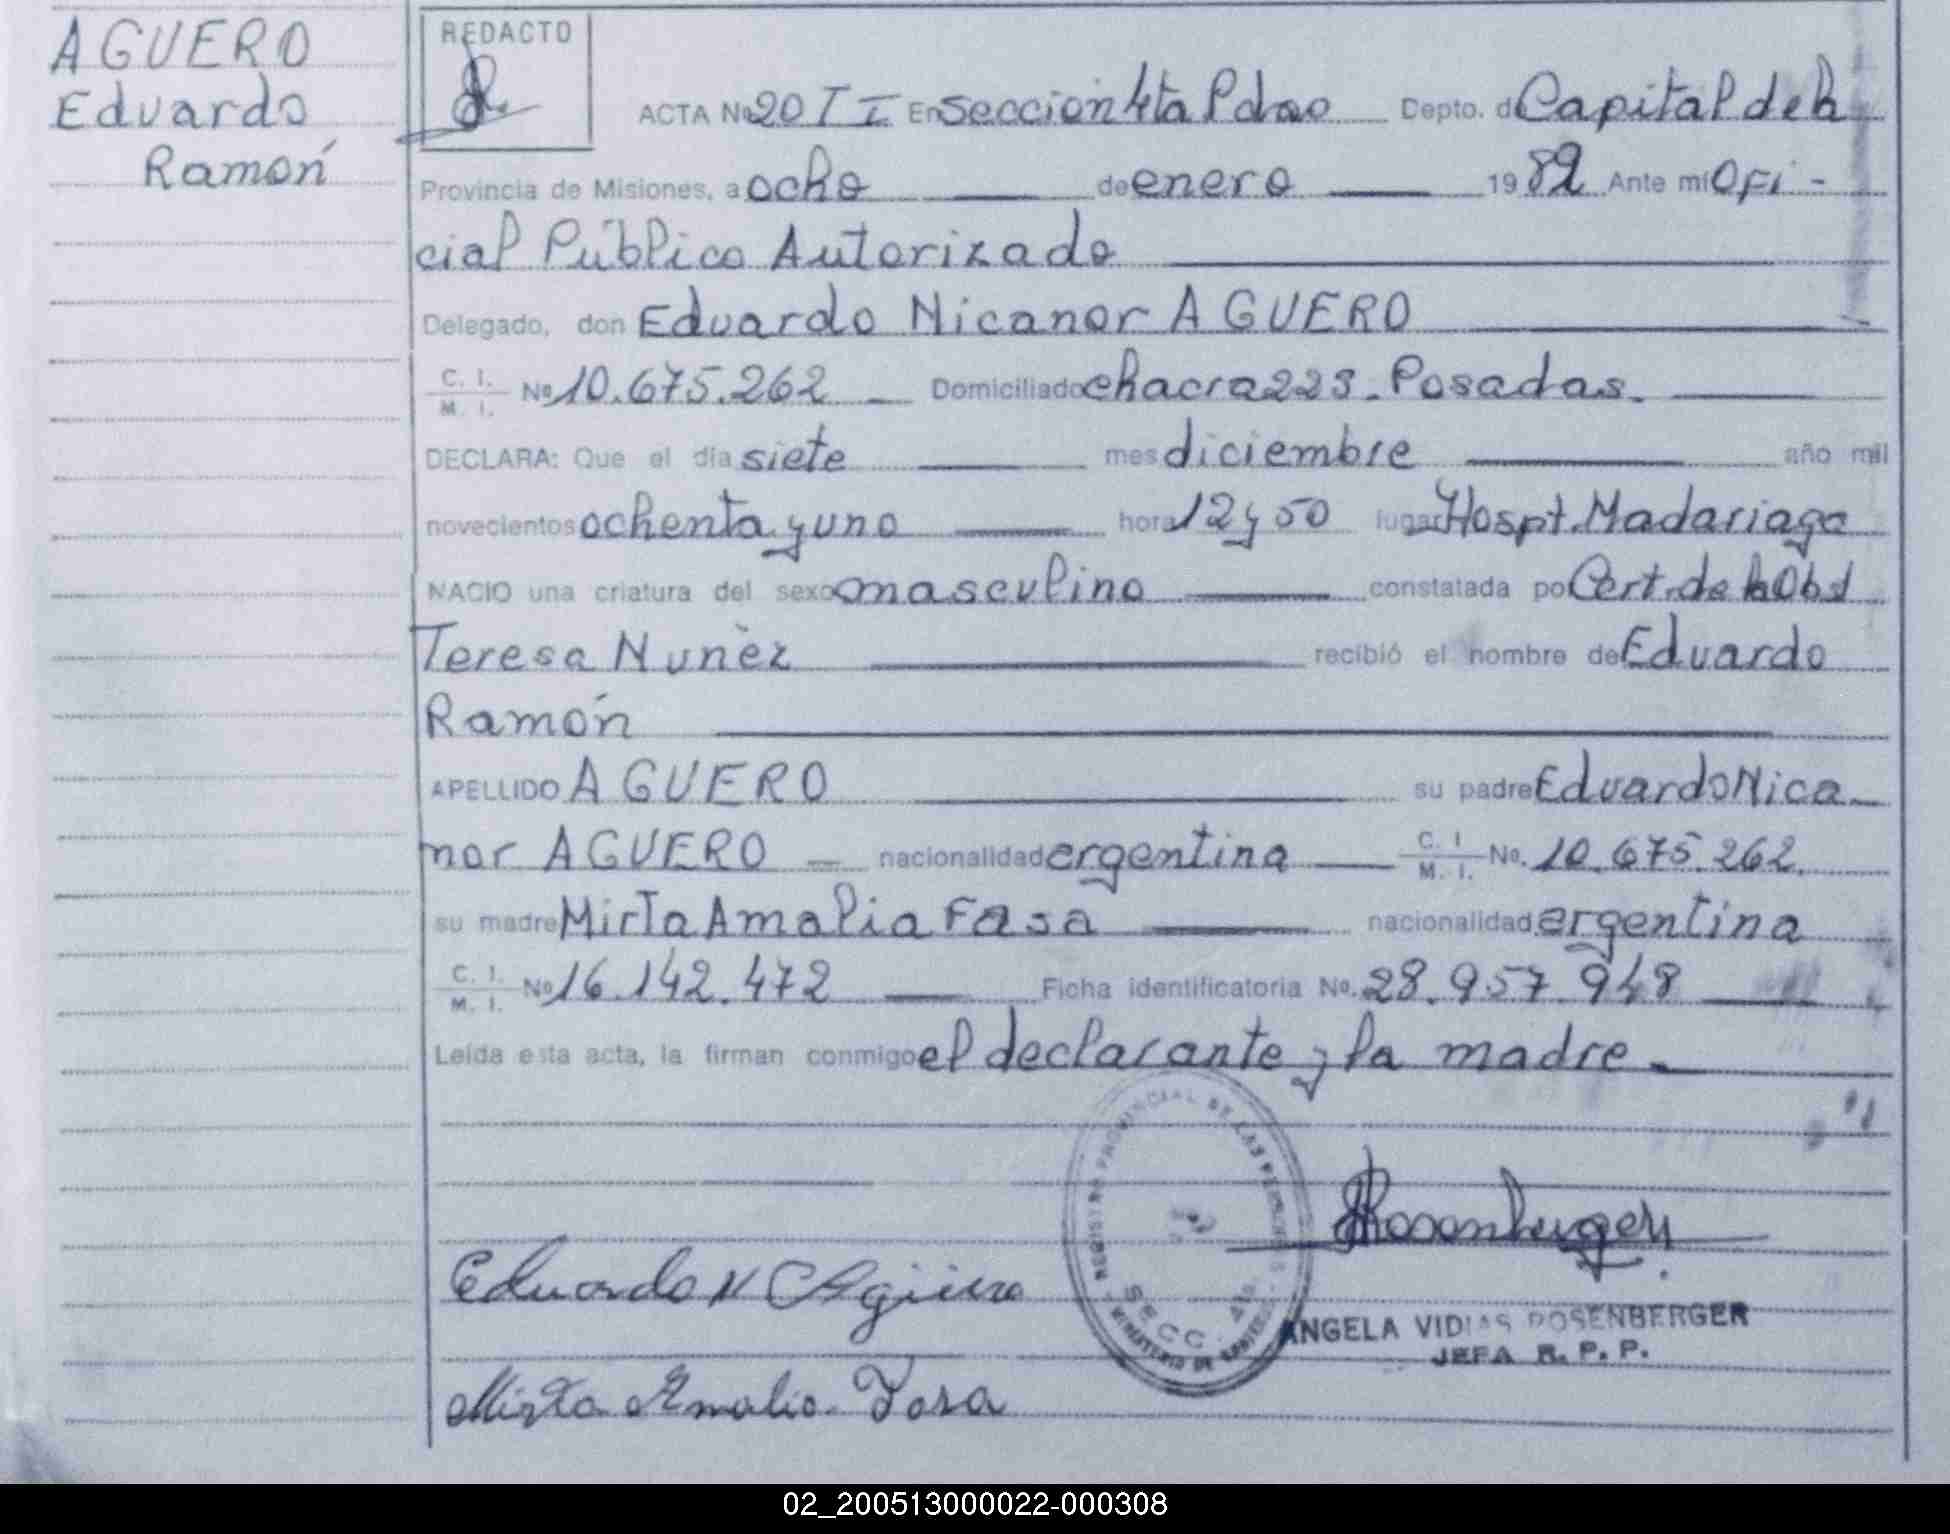 AGUERO
Eduardo
Ramón
REDACTO
ACTA Nº 20 T I En Seccion 4ta Pdas Depto. d Capital de la
Provincia de Misiones, a ocho de enero 1982 Ante mí Ofi-
cial Público Autorizado
Delegado, don Eduardo Nicanor AGUERO
C. I. M. I. Nº 10.675.262 Domiciliado chacra 223. Posadas.
DECLARA: Que el día siete mes diciembre año mil
novecientos ochenta y uno hora 12 y 50 lugar Hospt. Madariaga
NACIO una criatura del sexo masculino constatada po Cert. de la Obst
Teresa Nuñez recibió el nombre de Eduardo
Ramón
APELLIDO AGUERO su padre Eduardo Nica
nor AGUERO nacionalidad argentina C. I. M. I. No. 10.675.262.
su madre Mirta Amalia Fasa nacionalidad argentina
C. I. M. I. Nº 16.142.472 Ficha identificatoria No. 28.957.948
Leída esta acta, la firman conmigo el declarante y la madre.
REGISTRO PROVINCIAL DE LAS PERSONAS
SECC. 4ta.
MINISTERIO DE
Rosenberger
Eduardo N Agüero
ANGELA VIDIAS ROSENBERGER
JEFA R. P. P.
Mirta Amalia Fasa
02_200513000022-000308